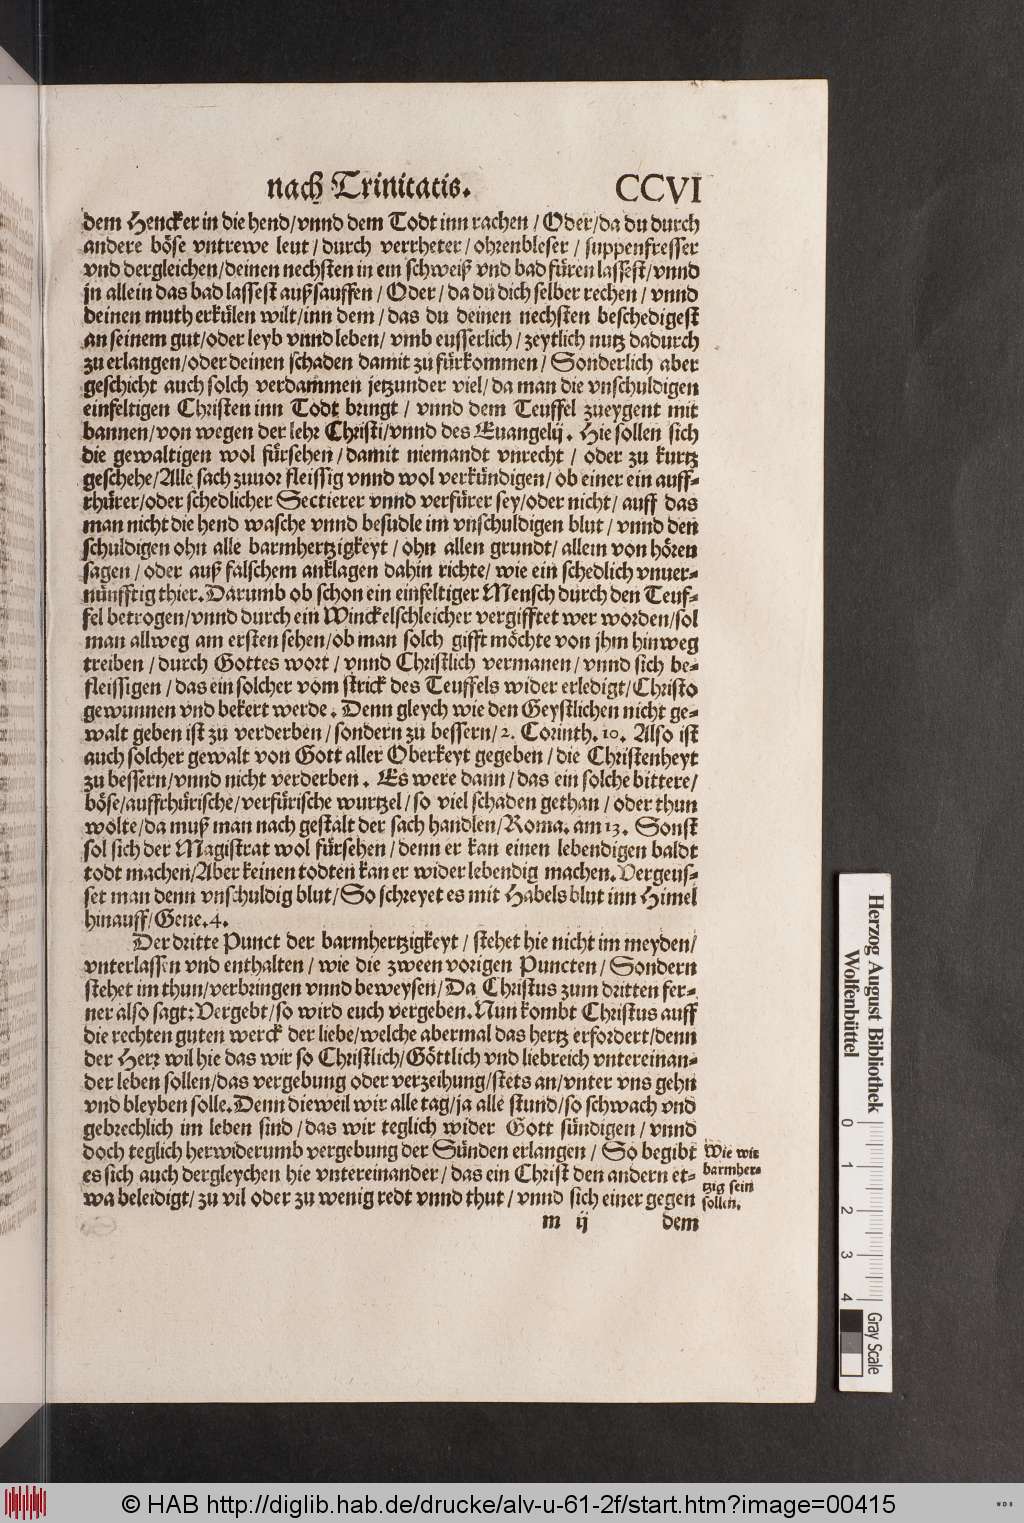 nach Trinitatis. CCVI
dem Hencker in die hend/vnnd dem Todt inn rachen / Oder/da du durch
andere böse vntrewe leut / durch verrheter / ohrenbleser / suppenfresser
vnd dergleichen/deinen nechsten in ein schweiß vnd bad füren lassest/vnnd
jn allein das bad lassest außsauffen / Oder / da du dich selber rechen / vnnd
deinen muth erkülen wilt/inn dem / das du deinen nechsten beschedigest
an seinem gut/oder leyb vnnd leben/ vmb eusserlich / zeytlich nutz dadurch
zu erlangen/oder deinen schaden damit zu fürkommen / Sonderlich aber
geschicht auch solch verdammen jetzunder viel/ da man die vnschuldigen
einfeltigen Christen inn Todt bringt / vnnd dem Teuffel zueygent mit
bannen/von wegen der lehr Christi/vnnd des Euangelij. Hie sollen sich
die gewaltigen wol fürsehen / damit niemandt vnrecht / oder zu kurtz
geschehe/Alle sach zuuor fleissig vnnd wol verkündigen / ob einer ein auff-
rhürer/oder schedlicher Sectierer vnnd verfürer sey/oder nicht/ auff das
man nicht die hend wasche vnnd besudle im vnschuldigen blut / vnnd den
schuldigen ohn alle barmhertzigkeyt / ohn allen grundt/ allein von hören
sagen / oder auß falschem anklagen dahin richte/ wie ein schedlich vnuer-
nünfftig thier. Darumb ob schon ein einfeltiger Mensch durch den Teuf-
fel betrogen/vnnd durch ein Winckelschleicher vergifftet wer worden/sol
man allweg am ersten sehen/ob man solch gifft möchte von jhm hinweg
treiben / durch Gottes wort / vnnd Christlich vermanen / vnnd sich be-
fleissigen / das ein solcher vom strick des Teuffels wider erledigt/Christo
gewunnen vnd bekert werde. Denn gleych wie den Geystlichen nicht ge-
walt geben ist zu verderben / sondern zu bessern/2. Corinth. 10. Also ist
auch solcher gewalt von Gott aller Oberkeyt gegeben / die Christenheyt
zu bessern/vnnd nicht verderben. Es were dann / das ein solche bittere/
böse/auffrhürische/verfürische wurtzel/ so viel schaden gethan / oder thun
wolte/da muß man nach gestalt der sach handlen/Roma. am 13. Sonst
sol sich der Magistrat wol fürsehen / denn er kan einen lebendigen baldt
todt machen/Aber keinen todten kan er wider lebendig machen. Vergeus-
set man denn vnschuldig blut/So schreyet es mit Habels blut inn Himel
hinauff/Gene. 4.
Der dritte Punct der barmhertzigkeyt / stehet hie nicht im meyden/
vnterlassen vnd enthalten / wie die zween vorigen Puncten/ Sondern
stehet im thun/verbringen vnnd beweysen/ Da Christus zum dritten fer-
ner also sagt: Vergebt/so wird euch vergeben. Nun kombt Christus auff
die rechten guten werck der liebe/welche abermal das hertz erfordert/denn
der Herr wil hie das wir so Christlich/Göttlich vnd liebreich vntereinan-
der leben sollen/das vergebung oder verzeihung/stets an/vnter vns gehn
vnd bleyben solle. Denn dieweil wir alle tag/ja alle stund/so schwach vnd
gebrechlich im leben sind / das wir teglich wider Gott sündigen / vnnd
doch teglich herwiderumb vergebung der Sünden erlangen / So begibt
es sich auch dergleychen hie vntereinander / das ein Christ den andern et-
wa beleidigt/ zu vil oder zu wenig redt vnnd thut / vnnd sich einer gegen
Wie wir
barmher-
tzig sein
sollen.
m ij dem
Herzog August Bibliothek
Wolfenbüttel
0 1 2 3 4
Gray Scale
© HAB http://diglib.hab.de/drucke/alv-u-61-2f/start.htm?image=00415